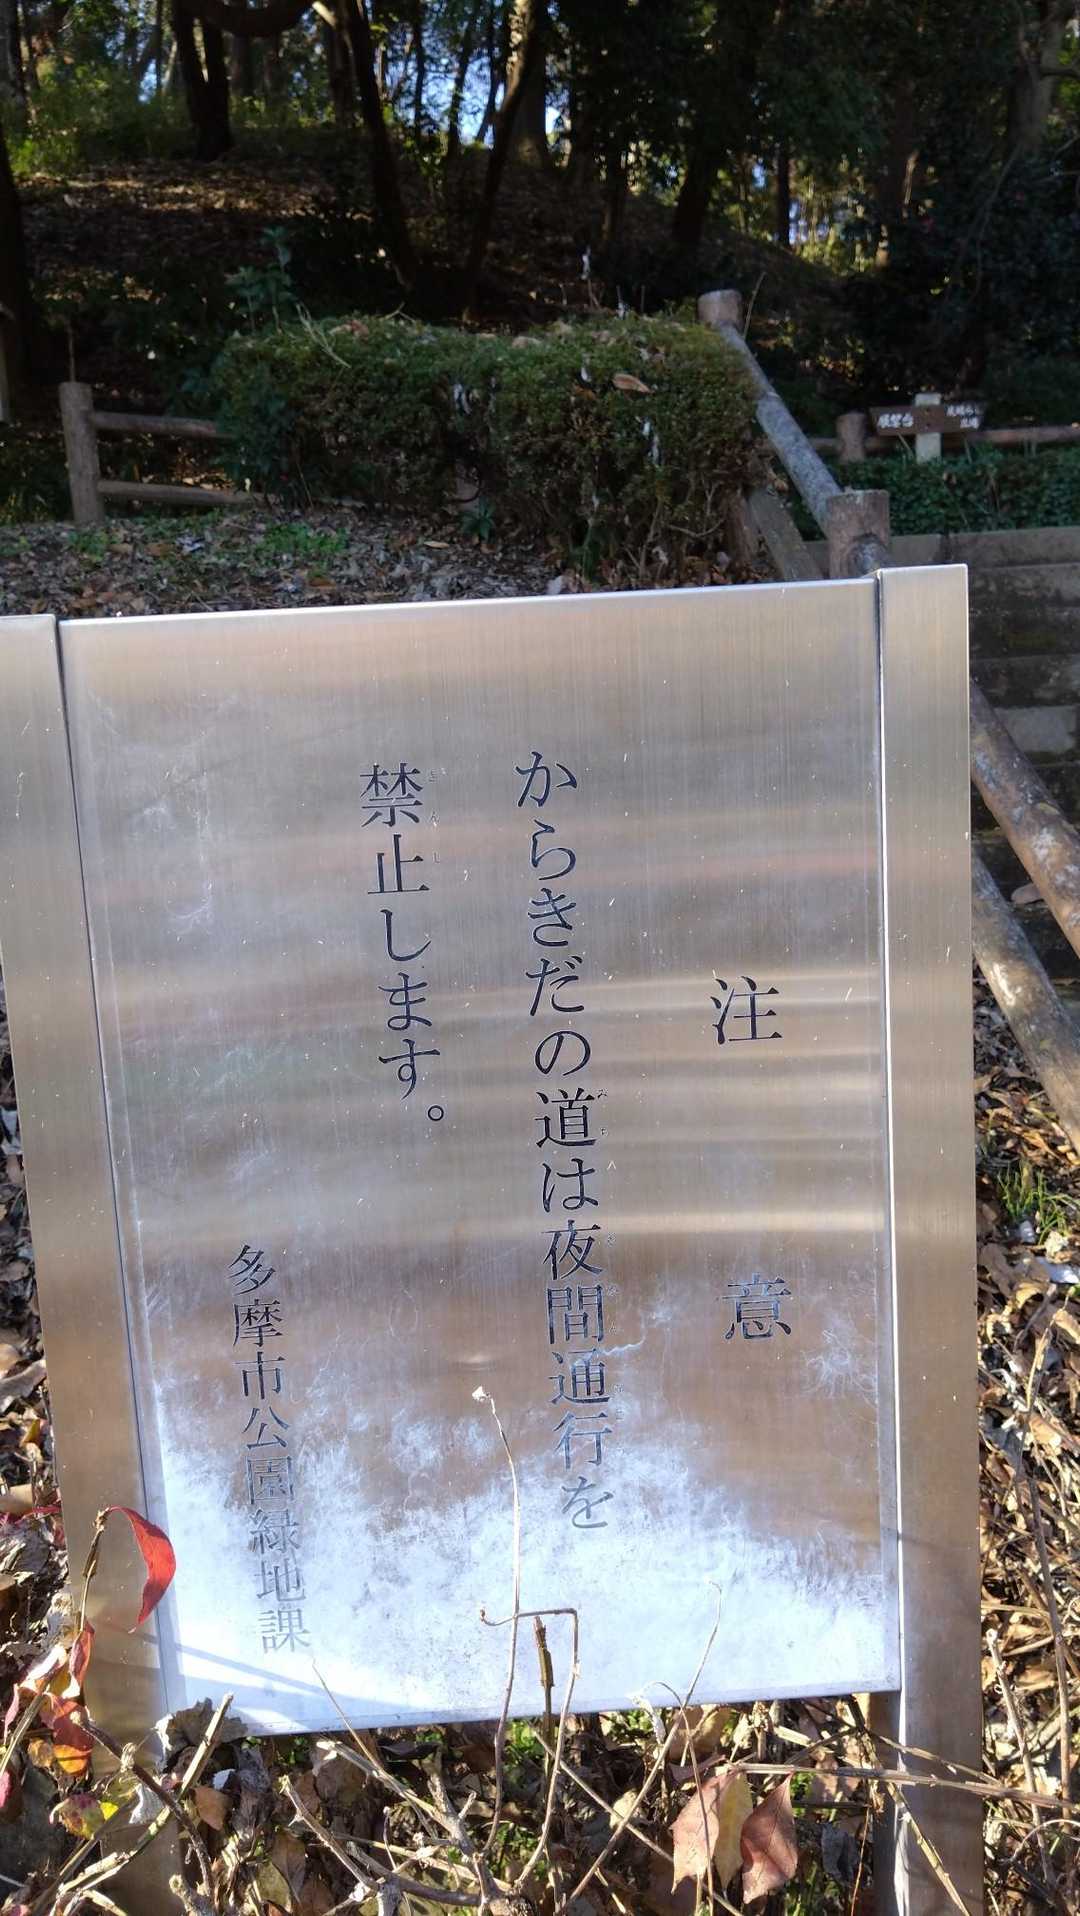 注意
からきだの道は夜間通行を
禁止します。
多摩市公園緑地課
展望台